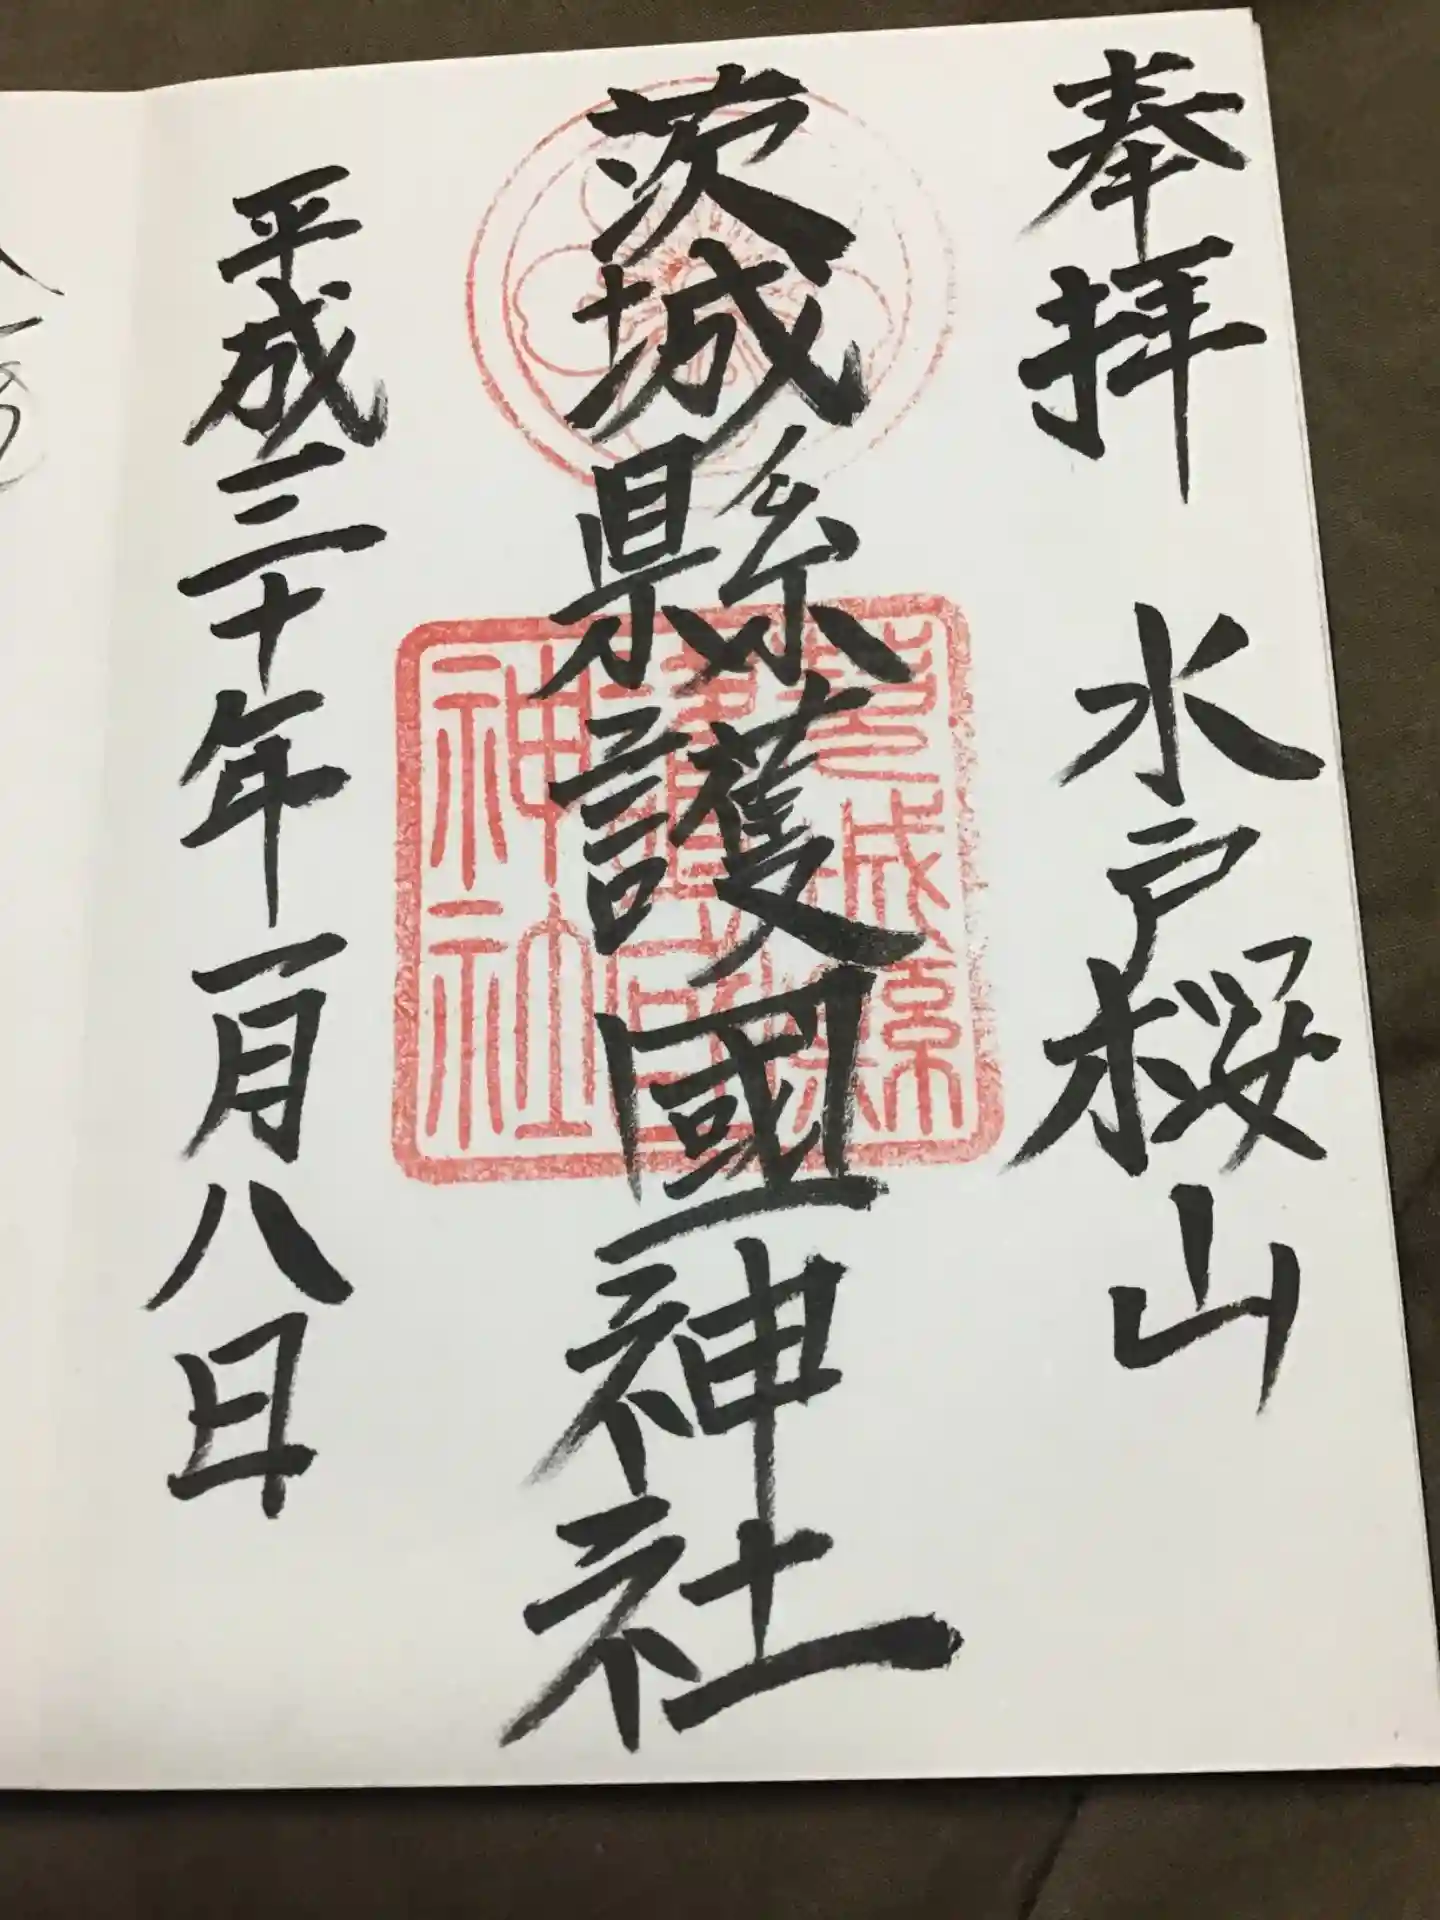 奉拝　水戸桜山
茨城縣護國神社
茨城縣護國神社
平成三十年一月八日